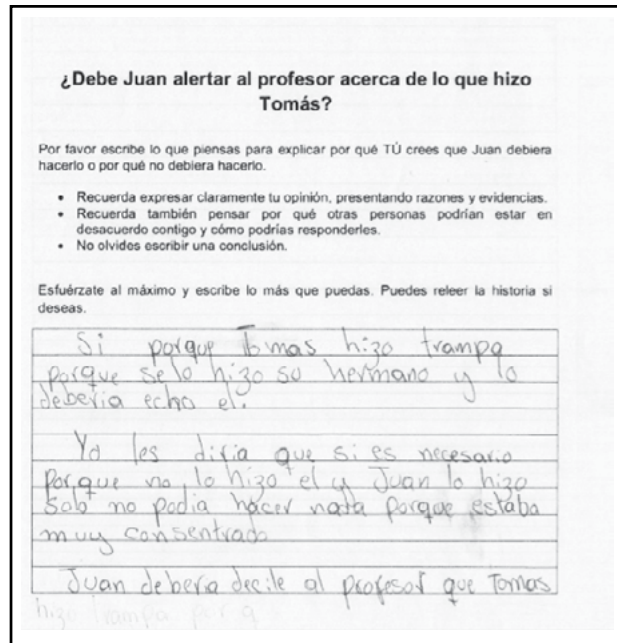 ¿Debe Juan alertar al profesor acerca de lo que hizo
Tomás?
Por favor escribe lo que piensas para explicar por qué TÚ crees que Juan debiera
hacerlo o por qué no debiera hacerlo.
• Recuerda expresar claramente tu opinión, presentando razones y evidencias.
• Recuerda también pensar por qué otras personas podrían estar en
desacuerdo contigo y cómo podrías responderles.
• No olvides escribir una conclusión.
Esfuérzate al máximo y escribe lo más que puedas. Puedes releer la historia si
deseas.
Si porque Tomas hizo trampa
porque se lo hizo su hermano y lo
deberia echo el.
Yo les diria que si es necesario
Porque no lo hizo el y Juan lo hizo
Solo no podia hacer nada porque estaba
muy consentrado
Juan deberia decile al profesor que Tomas
hizo trampa por q